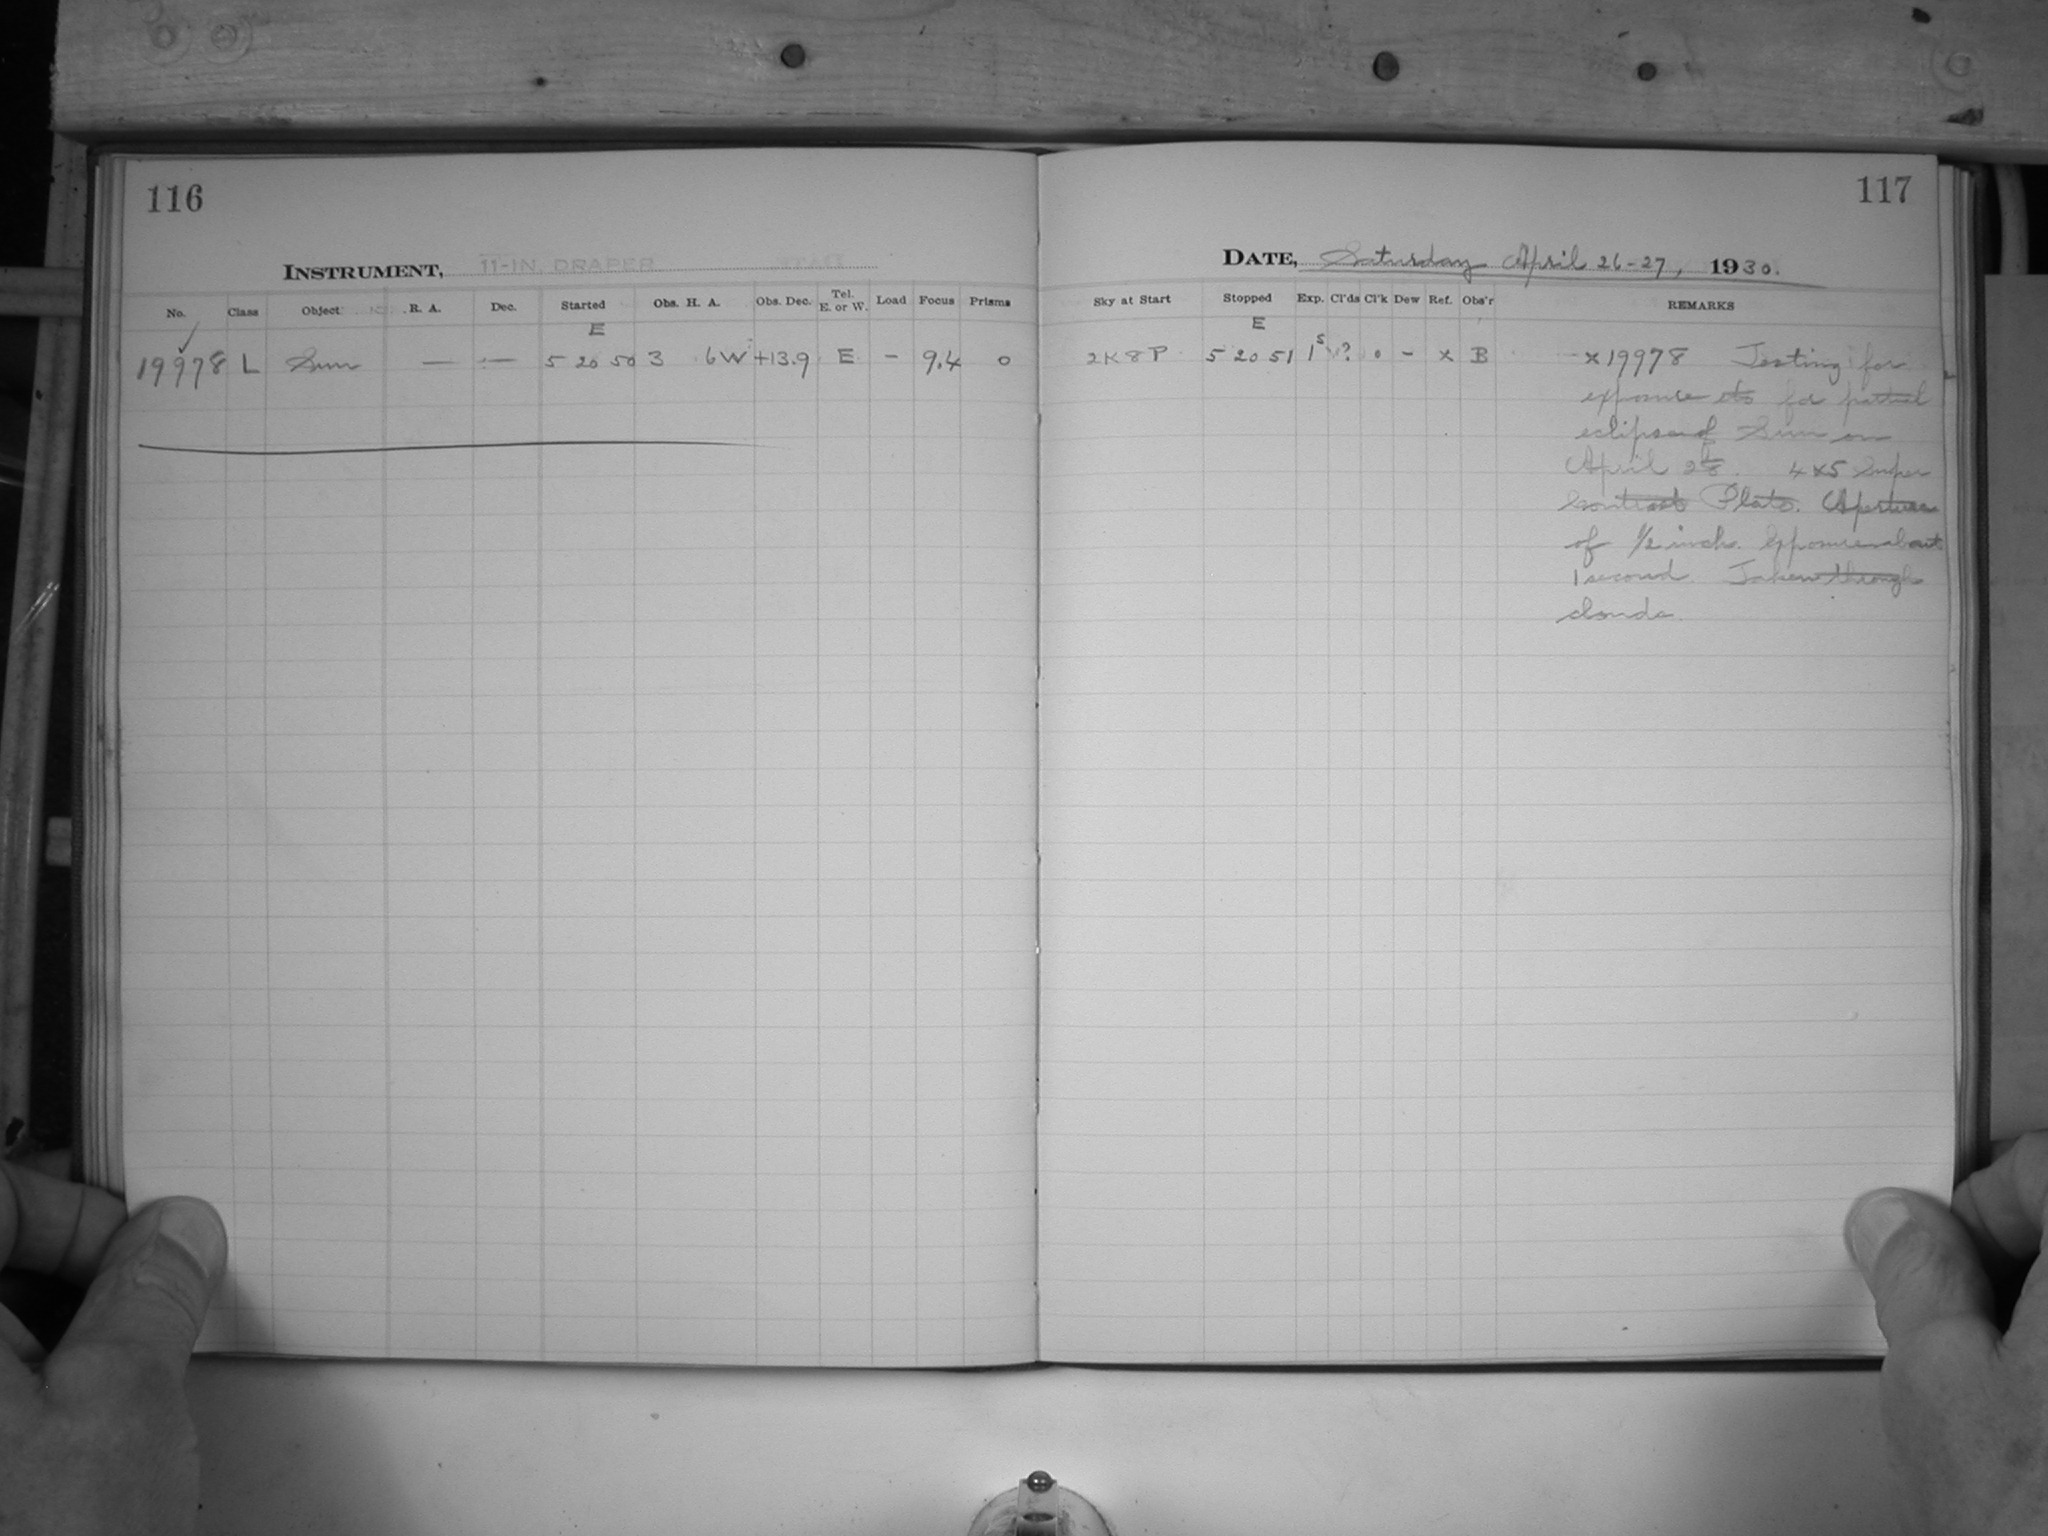 116
INSTRUMENT, 11-IN. DRAPER
No. Class Object R. A. Dec. Started Obs. H. A. Obs. Dec. Tel. E. or W. Load Focus Prisms
E
19978 L Sun — — 5 20 50 3 6 W +13.9 E - 9.4 0
117
DATE, Saturday April 26-27, 1930.
Sky at Start Stopped Exp. Cl'ds Cl'k Dew Ref. Obs'r REMARKS
E
2K8P 5 20 51 1s ? 0 - x B x 19978 Testing for
exposure etc for partial
eclipse of Sun on
April 28. 4x5 Super
Contrast Plate. Aperture
of 1/2 inch. Exposure about
1 second. Taken through
clouds.